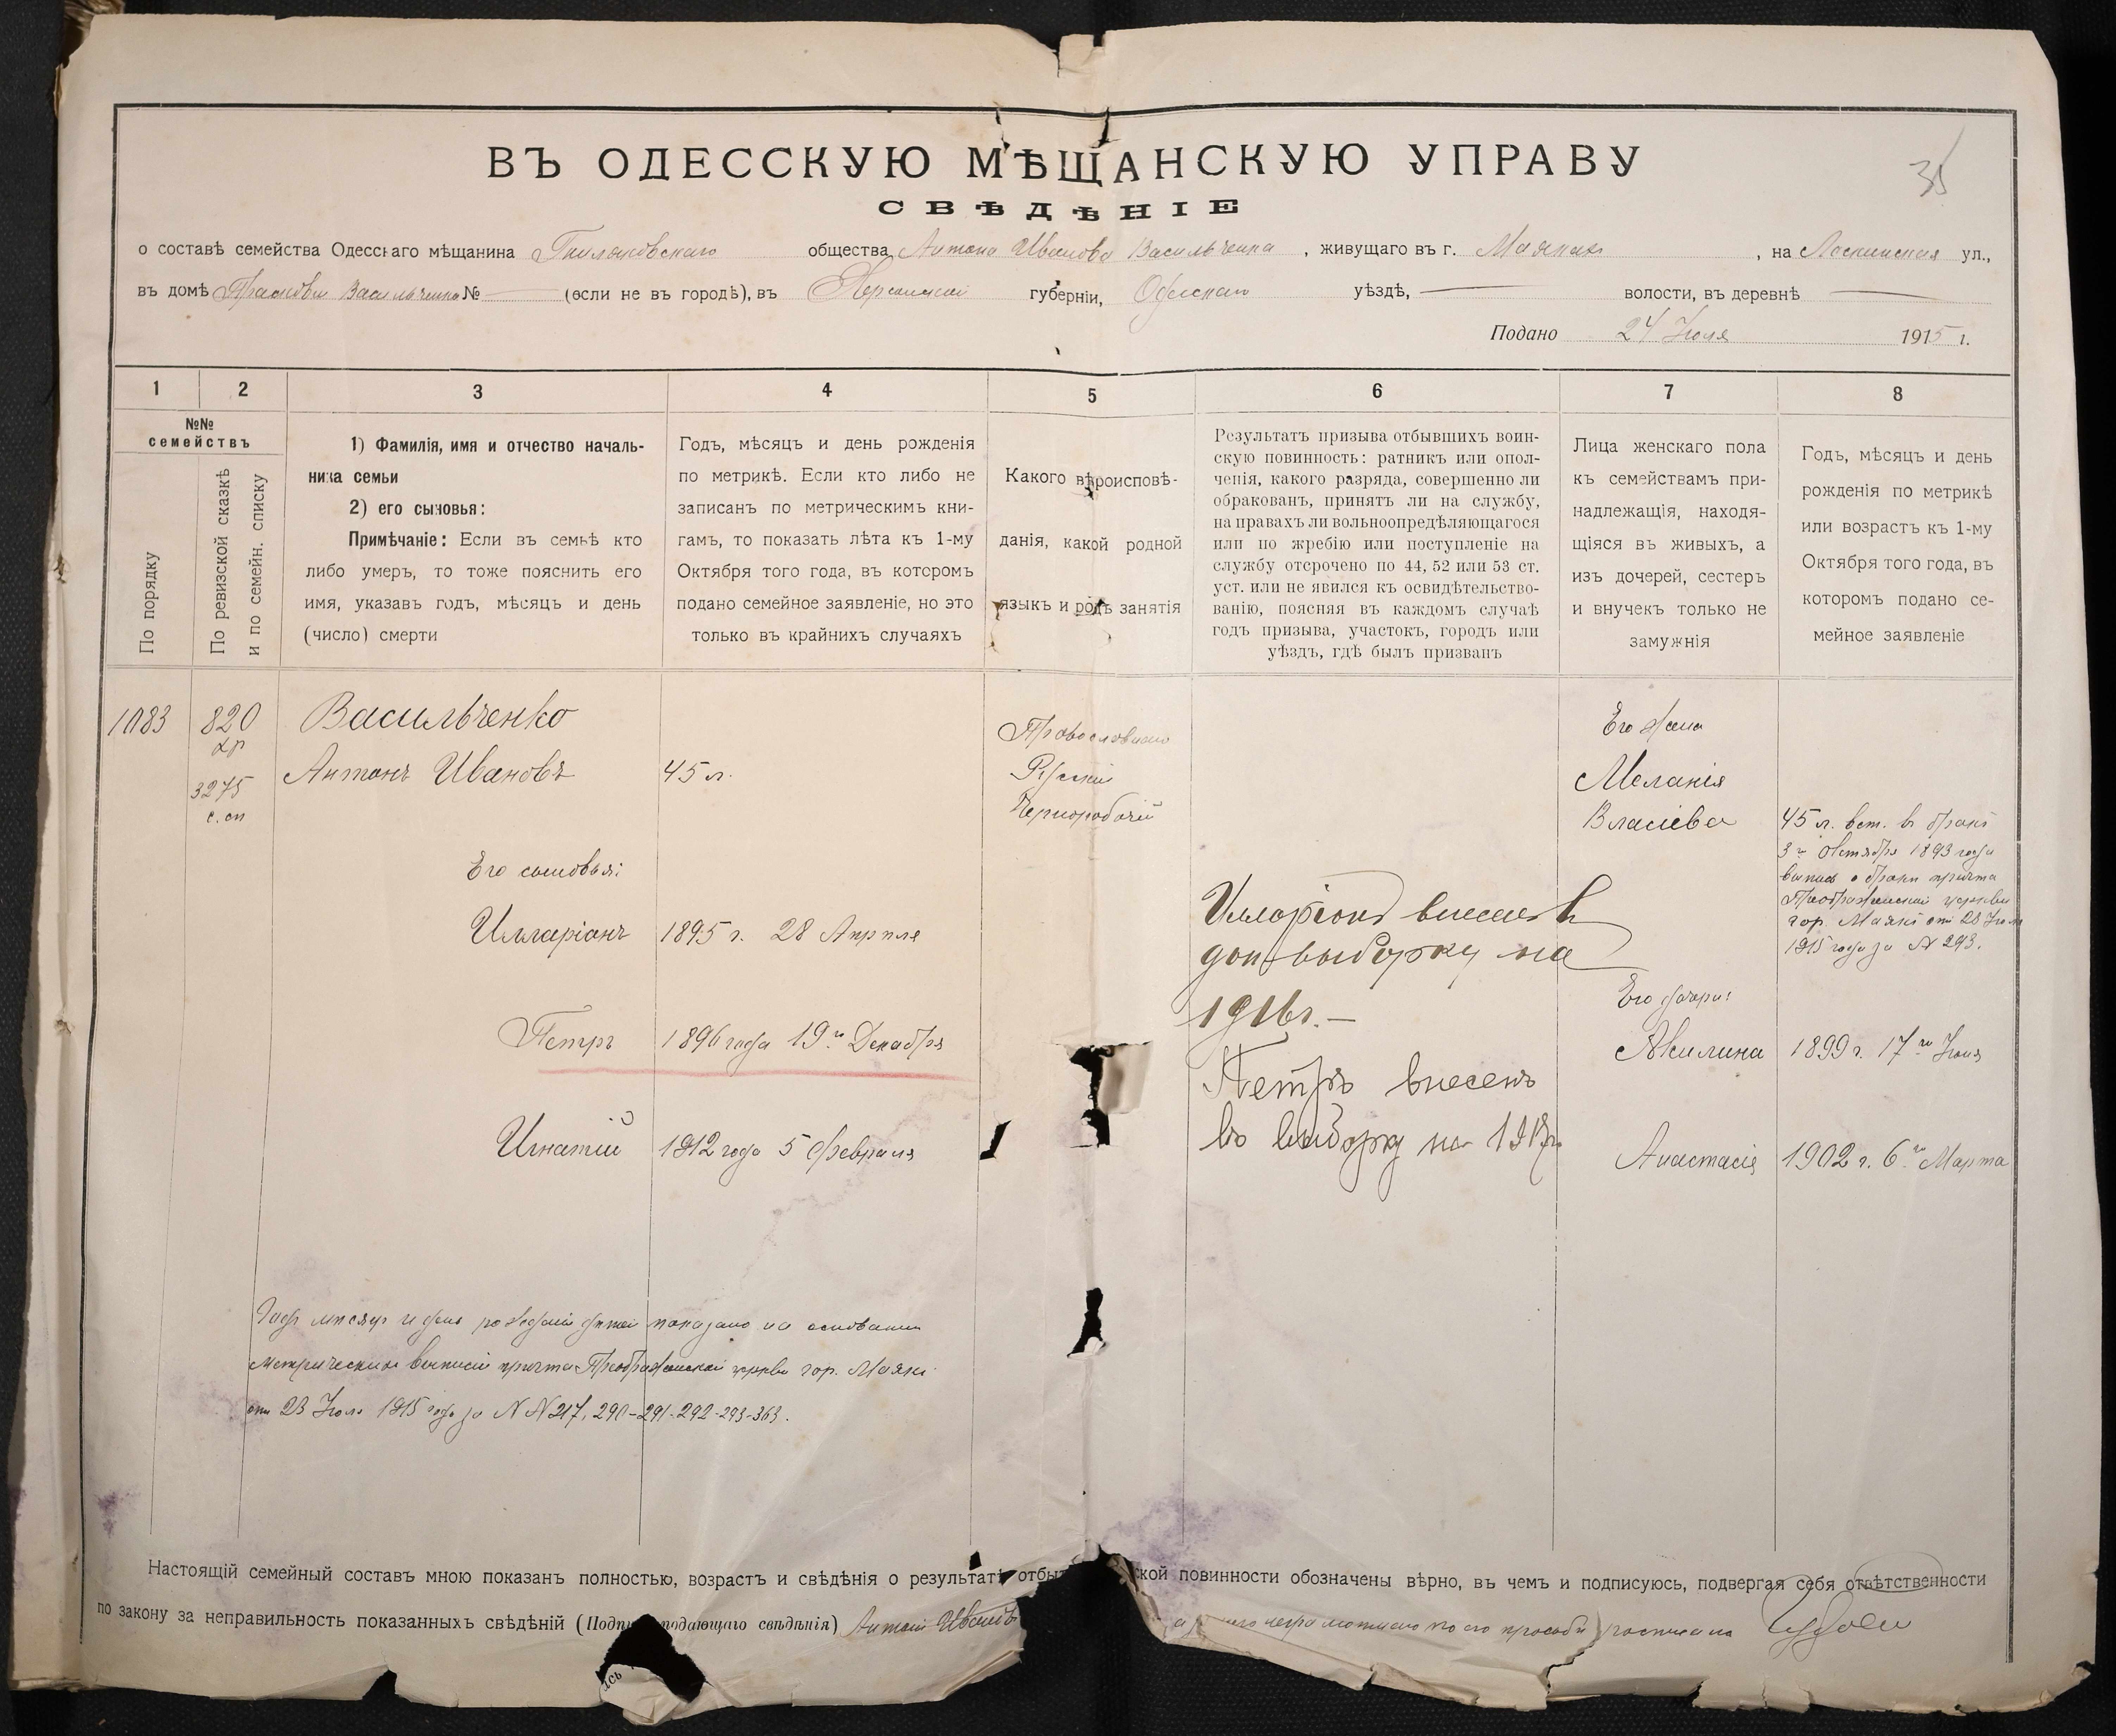 35
ВЪ ОДЕССКУЮ МѢЩАНСКУЮ УПРАВУ
СВѢДѢНІЕ
о составѣ семейства Одесскаго мѣщанина общества Антона Иванова Васильченка, живущаго въ г. Маякахъ, на ул.,
въ домѣ Васильченка № — (если не въ городѣ), въ Херсонской губерніи, Одесскаго уѣздѣ, — волости, въ деревнѣ —
Подано 24 Іюля 1915 г.
1 2 3 4 5 6 7 8
№№
семействъ
По порядку
По ревизской сказкѣ
и по семейн. списку
1) Фамилія, имя и отчество началь-
ника семьи
2) его сыновья:
Примѣчаніе: Если въ семьѣ кто
либо умеръ, то тоже пояснить его
имя, указавъ годъ, мѣсяцъ и день
(число) смерти
Годъ, мѣсяцъ и день рожденія
по метрикѣ. Если кто либо не
записанъ по метрическимъ кни-
гамъ, то показать лѣта къ 1-му
Октября того года, въ которомъ
подано семейное заявленіе, но это
только въ крайнихъ случаяхъ
Какого вѣроисповѣ-
данія, какой родной
языкъ и родъ занятія
Результатъ призыва отбывшихъ воин-
скую повинность: ратникъ или опол-
ченія, какого разряда, совершенно ли
обракованъ, принятъ ли на службу,
на правахъ ли вольноопредѣляющагося
или по жребію или поступленіе на
службу отсрочено по 44, 52 или 53 ст.
уст. или не явился къ освидѣтельство-
ванію, поясняя въ каждомъ случаѣ
годъ призыва, участокъ, городъ или
уѣздъ, гдѣ былъ призванъ
Лица женскаго пола
къ семействамъ при-
надлежащія, находя-
щіяся въ живыхъ, а
изъ дочерей, сестеръ
и внучекъ только не
замужнія
Годъ, мѣсяцъ и день
рожденія по метрикѣ
или возрастъ къ 1-му
Октября того года, въ
которомъ подано се-
мейное заявленіе
1083
820
др
3275
с. сп
Васильченко
Антонъ Ивановъ 45 л.
Его сыновья:
Илларіонъ 1895 г. 28 Апрѣля
Петръ 1896 года 19го Декабря
Игнатій 1912 года 5 февраля
Православнаго
Русскій
Чернорабочій
Илларіонъ внесенъ въ
доп. выборку на
1916 г. —
Петръ внесенъ
въ выборку на 1917 г.
Его жена
Меланія
Власіева
45 л. вст. въ бракъ
3го Октября 1893 года
выпись о бракѣ причта
Преображенской церкви
гор. Маякъ отъ 23 Іюля
1915 года за № 293.
Его дочери:
Акилина 1899 г. 17го Іюня
Анастасія 1902 г. 6го Марта
Годъ мѣсяцъ и день рожденія дѣтей показано на основаніи
метрическихъ выписей причта Преображенской церкви гор. Маяки
отъ 23 Іюля 1915 года за №№ 217, 290-291-292-293-363.
Настоящій семейный составъ мною показанъ полностью, возрастъ и свѣдѣнія о результатѣ отбыт ской повинности обозначены вѣрно, въ чемъ и подписуюсь, подвергая себя отвѣтственности
по закону за неправильность показанныхъ свѣдѣній (Подпи подающаго свѣдѣнія) Антонъ Ивановъ неграмотнаго по его просьбѣ росписался